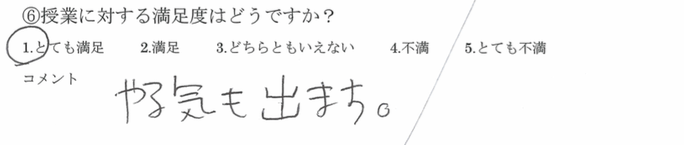 ⑥授業に対する満足度はどうですか？
1.とても満足 2.満足 3.どちらともいえない 4.不満 5.とても不満
コメント
やる気も出まち。